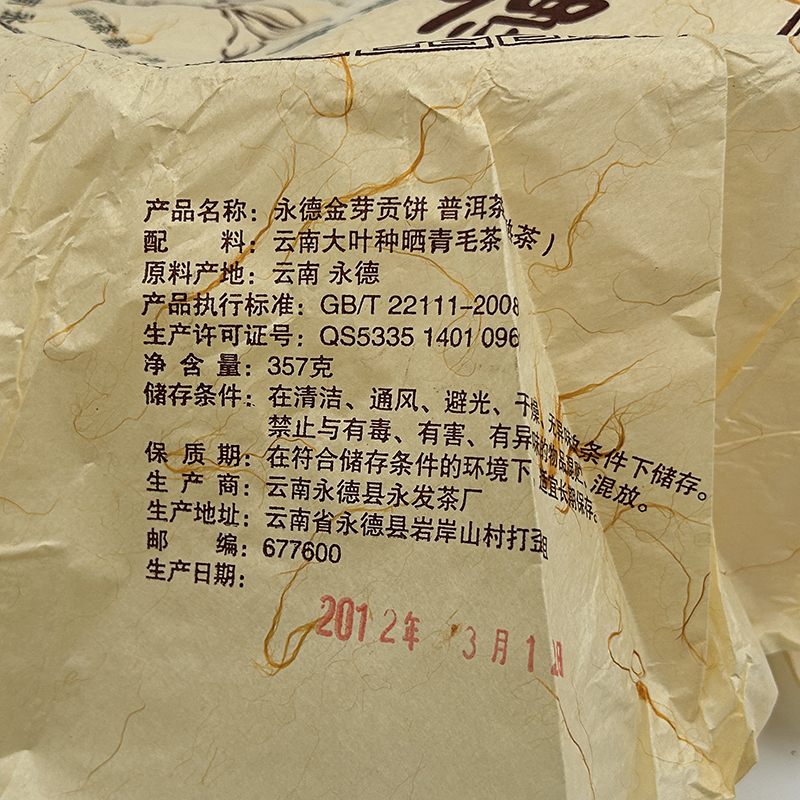 德
产品名称：永德金芽贡饼 普洱茶
配 料：云南大叶种晒青毛茶 茶）
原料产地：云南 永德
产品执行标准：GB/T 22111-2008
生产许可证号：QS5335 1401 096
净 含 量：357克
储存条件：在清洁、通风、避光、干燥、无异味条件下储存。
禁止与有毒、有害、有异味的物品混贮、混放。
保 质 期：在符合储存条件的环境下，适宜长期保存。
生 产 商：云南永德县永发茶厂
生产地址：云南省永德县岩岸山村打歪
邮 编：677600
生产日期：
2012年 3月1 日